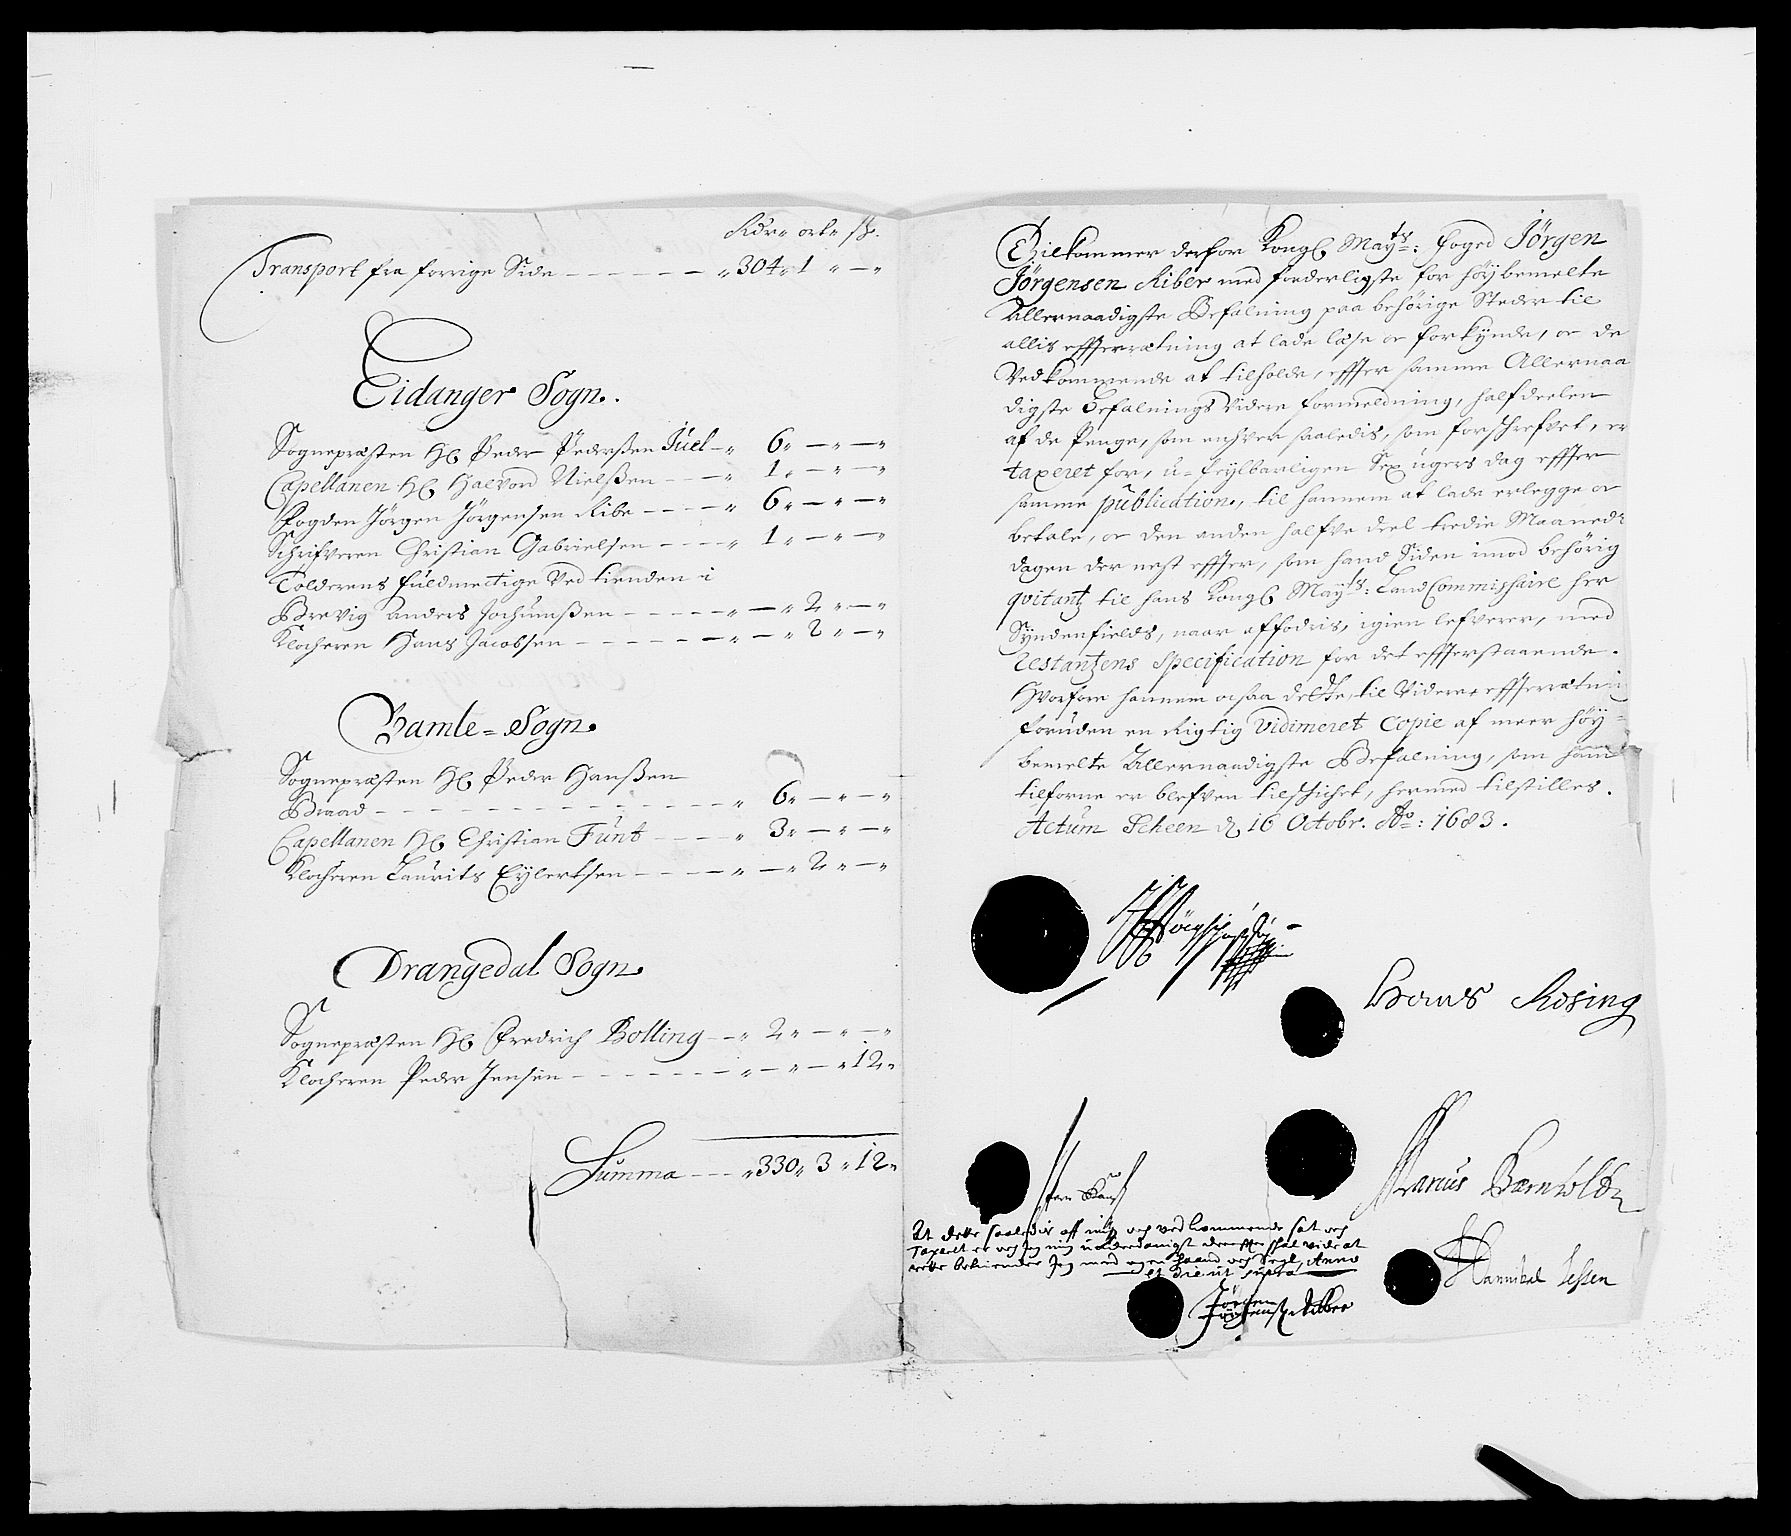 Rdr. ort. sk.
Transport fra forrige Side — — — — „ 304 „ 1 „ — „
Eidanger Sogn.
Sognepræsten Hr Peder Pederßen Juel — „ 6 „ — „ — „
Capellanen Hr Halvord Nielßen — — — „ 1 „ — „ — „
Fogden Jørgen Jørgensen Ribe — — — — „ 6 „ — „ — „
Schrifveren Christian Gabrielsen — — — „ 1 „ — „ — „
Tolderens fuldmectige ved tienden i
Brevig Anders Jochumßen — — — — — „ — „ 2 „ — „
Klocheren Hans Jacobsen — — — — — „ — „ 2 „ — „
Bamle = Sogn
Sognepræsten Hr Peder Hanßen
Braad — — — — — — — — — „ 6 „ — „ — „
Capellanen Hr Christian Funt — — — „ 3 „ — „ — „
Klocheren Laurits Eylertsen — — — — „ — „ 2 „ — „
Drangedal Sogn
Sognepræsten Hr Fredrich Bolling — „ 2 „ — „ — „
Klocheren Peder Jensen — — — — — „ — „ — „ 12 „
Summa — — „ 330 „ 3 „ 12 „
Tilkommer derfor Kongl. Mayts: foged Jørgen
Jørgensen Riber med forderligste for høybemelte
Allernaadigste Befalning paa behørige Steder til
allis effterrætning at lade læse oc forkynde, oc de
Vedkommende at tilholde, effter samme Allernaa
digste Befalnings videre formeldning, halfdeelen
af de Penge, som enhver saaledis, som forschrefvet, er
taxeret for, u-feylbarligen Sex ugers dag effter
samme publication, til hannem at lade erlegge oc
betale, oc den anden halfve deel tredie Maaneds
dagen der nest effter, som hand siden imod behørig
qvitantz til hans Kongl. Mayts: Land Commissaire her
Syndenfields, naar affodris, igien lefverer, med
restantzens specification for det effterstaaende.
Hvorfore hannem ocsaa dette, til videre effterrætning
foruden en Rigtig Vidimeret Copie af meer høy-
bemelte Allernaadigste Befalning, som ham
tilforne er blefven tilschichet, hermed tilstilles.
Actum Scheen d. 16 Octobr. Ao: 1683.
Hans Rosing
Bærnholdt
Hannibal Jessen
At dette saaledis aff mig och vedkommende sat och
Taxeret er och jeg mig underdanigst dereffter schal vide at
rette bekiender Jeg med egen haand och Segl, Anno
et Die ut supra
Jørgen
Jørgensen Riber